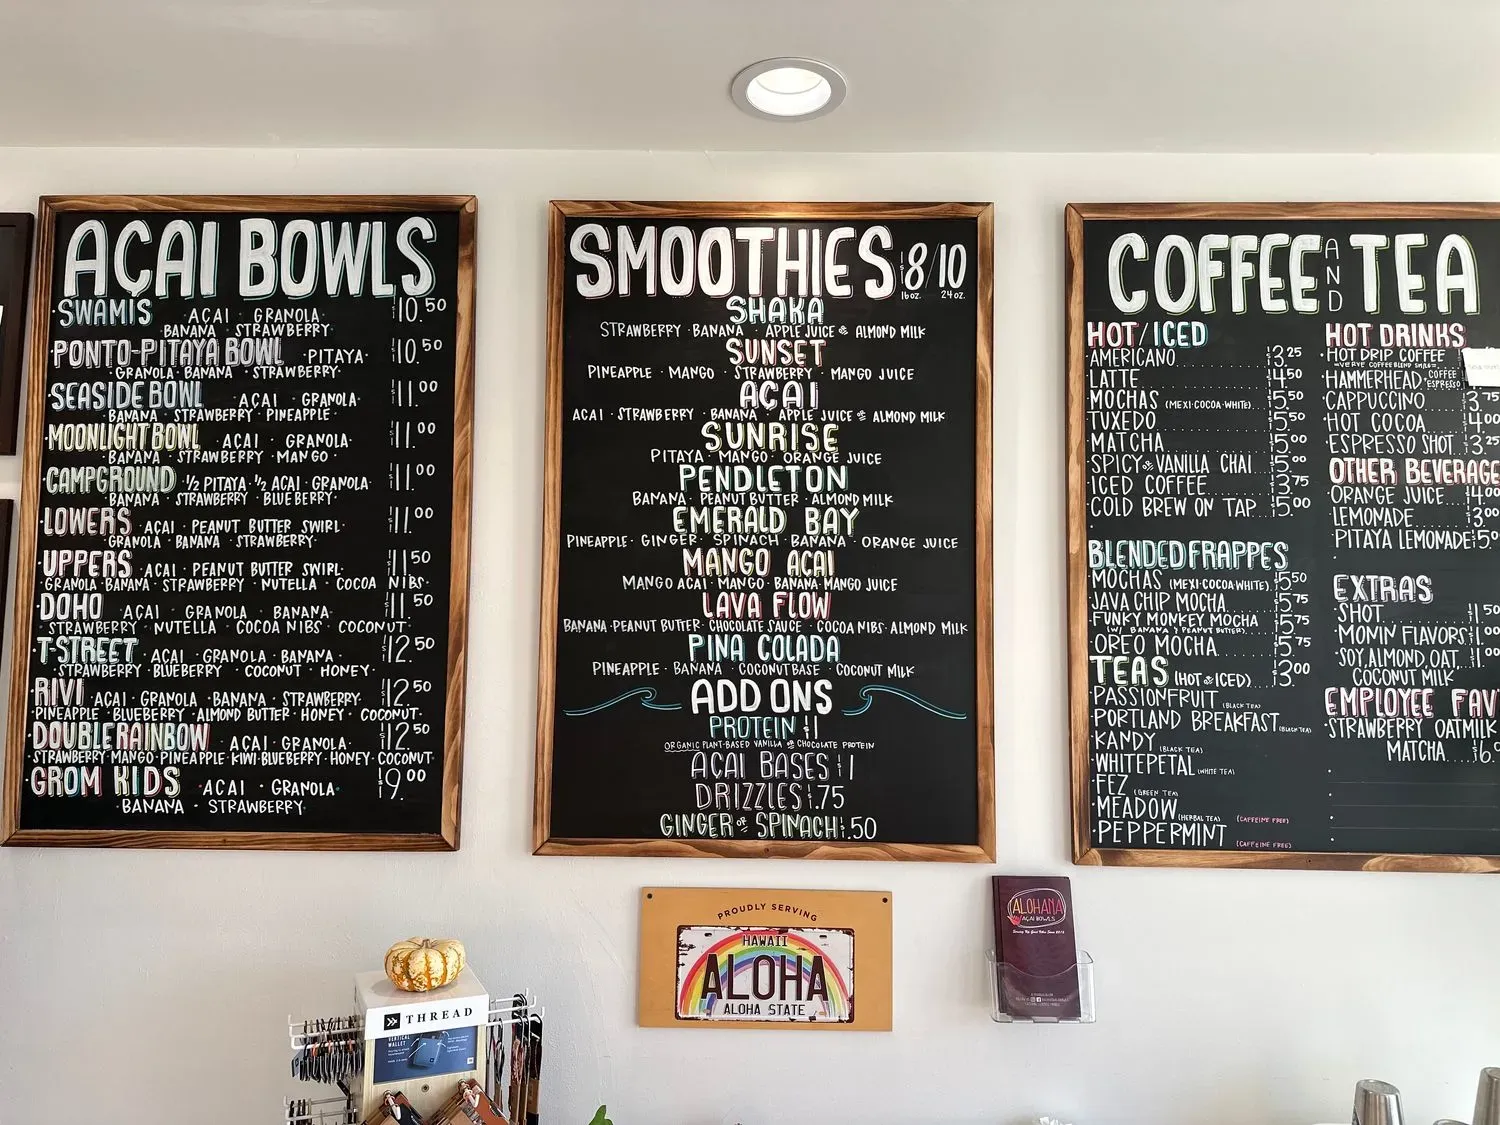 AÇAI BOWLS
SWAMIS AÇAI · GRANOLA· $10.50
BANANA · STRAWBERRY·
·PONTO-PITAYA BOWL ·PITAYA· $10.50
·GRANOLA· BANANA · STRAWBERRY·
·SEASIDE BOWL AÇAI · GRANOLA· $11.00
BANANA · STRAWBERRY· PINEAPPLE·
·MOONLIGHT BOWL AÇAI · GRANOLA· $11.00
BANANA · STRAWBERRY · MANGO·
·CAMPGROUND ½ PITAYA· ½ AÇAI· GRANOLA· $11.00
BANANA · STRAWBERRY· BLUEBERRY·
·LOWERS AÇAI · PEANUT BUTTER SWIRL· $11.00
GRANOLA · BANANA · STRAWBERRY·
·UPPERS AÇAI · PEANUT BUTTER SWIRL· $11.50
·GRANOLA·BANANA· STRAWBERRY · NUTELLA · COCOA NIBS·
·DOHO AÇAI · GRANOLA · BANANA· $11.50
STRAWBERRY · NUTELLA · COCOA NIBS · COCONUT·
·T-STREET AÇAI · GRANOLA · BANANA· $12.50
·STRAWBERRY· BLUEBERRY · COCONUT · HONEY·
·RIVI AÇAI · GRANOLA · BANANA · STRAWBERRY· $12.50
·PINEAPPLE · BLUEBERRY· ALMOND BUTTER · HONEY · COCONUT·
·DOUBLE RAINBOW AÇAI · GRANOLA· $12.50
·STRAWBERRY·MANGO·PINEAPPLE·KIWI·BLUEBERRY·HONEY·COCONUT
GROM KIDS AÇAI · GRANOLA· $9.00
BANANA · STRAWBERRY·
SMOOTHIES $8/10
16 oz. 24 oz.
SHAKA
STRAWBERRY · BANANA · APPLE JUICE & ALMOND MILK
SUNSET
PINEAPPLE · MANGO · STRAWBERRY · MANGO JUICE
AÇAI
ACAI · STRAWBERRY · BANANA · APPLE JUICE & ALMOND MILK
SUNRISE
PITAYA · MANGO · ORANGE JUICE
PENDLETON
BANANA · PEANUT BUTTER · ALMOND MILK
EMERALD BAY
PINEAPPLE · GINGER · SPINACH · BANANA · ORANGE JUICE
MANGO AÇAI
MANGO ACAI · MANGO · BANANA · MANGO JUICE
LAVA FLOW
BANANA · PEANUT BUTTER · CHOCOLATE SAUCE · COCOA NIBS· ALMOND MILK
PINA COLADA
PINEAPPLE · BANANA · COCONUT BASE · COCONUT MILK
ADD ONS
PROTEIN $1
ORGANIC PLANT-BASED VANILLA OR CHOCOLATE PROTEIN
AÇAI BASES $1
DRIZZLES $.75
GINGER OR SPINACH $.50
COFFEE AND TEA
HOT / ICED
·AMERICANO $3.25
·LATTE $4.50
·MOCHAS (MEXI·COCOA·WHITE) $5.50
·TUXEDO $5.50
·MATCHA $5.00
·SPICY OR VANILLA CHAI $5.00
·ICED COFFEE $3.75
·COLD BREW ON TAP $5.00
BLENDED FRAPPES
·MOCHAS (MEXI·COCOA·WHITE) $5.50
·JAVA CHIP MOCHA $5.75
·FUNKY MONKEY MOCHA $5.75
(W/ BANANA & PEANUT BUTTER)
·OREO MOCHA $5.75
TEAS (HOT OR ICED) $3.00
·PASSIONFRUIT (BLACK TEA)
·PORTLAND BREAKFAST (BLACK TEA)
·KANDY (BLACK TEA)
·WHITEPETAL (WHITE TEA)
·FEZ (GREEN TEA)
·MEADOW (HERBAL TEA) (CAFFEINE FREE)
·PEPPERMINT (CAFFEINE FREE)
HOT DRINKS
·HOT DRIP COFFEE
~VERVE COFFEE BLEND
·HAMMERHEAD· COFFEE ESPRESSO
·CAPPUCCINO $3.75
·HOT COCOA $4.00
·ESPRESSO SHOT $3.25
OTHER BEVERAGE
·ORANGE JUICE $4.00
·LEMONADE $3.00
·PITAYA LEMONADE $5.0
EXTRAS
·SHOT $1.50
·MONIN FLAVORS $1.00
·SOY, ALMOND, OAT, $1.00
COCONUT MILK
EMPLOYEE FAV
·STRAWBERRY OATMILK
MATCHA $6.
PROUDLY SERVING
HAWAII
ALOHA
ALOHA STATE
ALOHANA
AÇAI BOWLS
THREAD
VERTICAL
WALLET